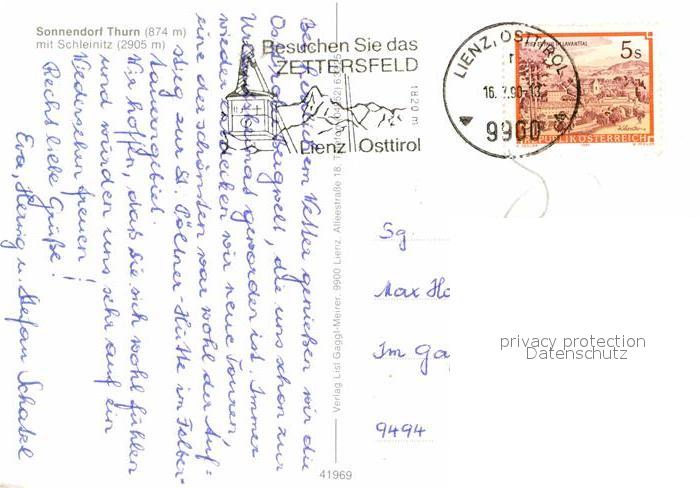 Sonnendorf Thurn (874 m)
mit Schleinitz (2905 m)
Besuchen Sie das
ZETTERSFELD
1820 m
Lienz Osttirol
LIENZ, OSTTIROL
16.7.90-13
9900
5 s
REPUBLIK ÖSTERREICH
Bei Wetter genießen wir die
Bergwelt, die uns schon zur
geworden ist. Immer
wieder entdecken wir neue Touren,
eine der schönsten war wohl der Auf=
stieg zur St. Pöltner-Hütte im Felber-
tauerngebiet.
Wir hoffen, daß Sie sich wohl fühlen
und würden uns sehr auf ein
Wiedersehen freuen!
Recht liebe Grüße!
Eva, Herwig u. Stefan
Verlag Lisl Gaggl-Meirer, 9900 Lienz, Alleestraße 18
41969
Sg.
Max Ho
Im Ga
9494
privacy protection
Datenschutz